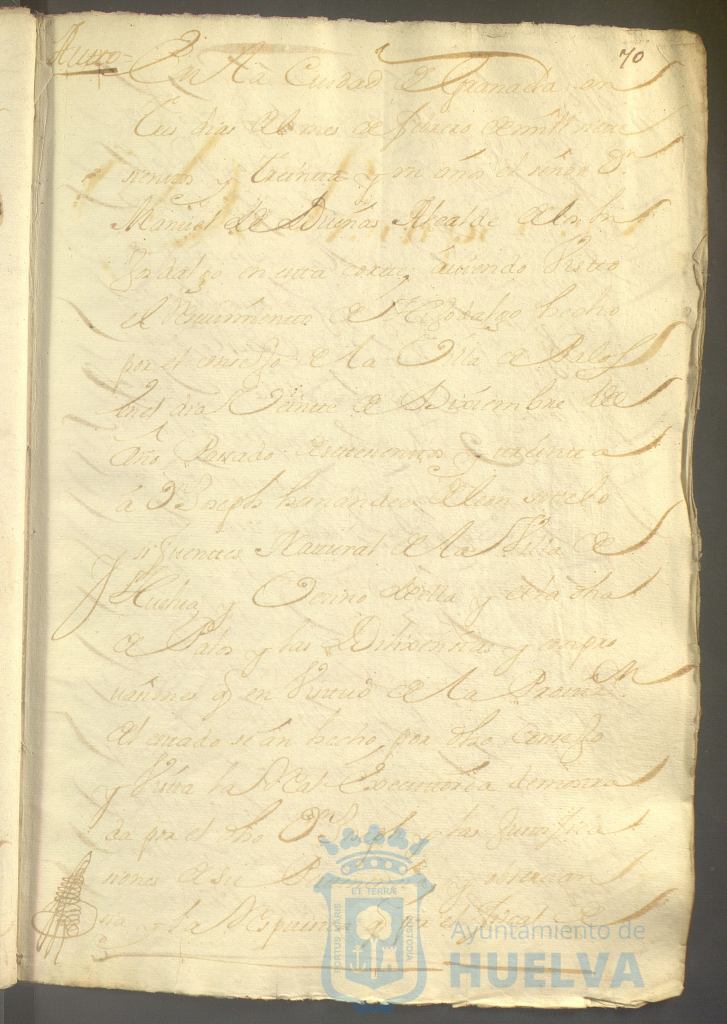 70
Autto = En la Ciudad de Granada en
tres dias del mes de Henero de mill sete
cientos y treinta y un años el señor Dn
Manuel de Dueñas Alcalde de los hi
josdalgo en esta corte, aviendo Visto
el Recivimiento de Hijodalgo hecho
por el conzejo de la Villa de Palos
en el dia Veinte de Diziembre del
Año Passado de setecientos y treinta
á Dn Joseph
y sifuentes Natural de la Villa de
Huelva y Vezino della y de la dha
de Palos y las Dilixencias y compro
vaziones q en Virtud de la Provin
del citado se an hecho por dho Conzejo
y Vista la Real Executoria demostra
da por el dho Dn Joseph y las Justifica
ziones de su
y la Respuesta
PORTUS MARIS
ET TERRAE
CUSTODIA
Ayuntamiento de
HUELVA